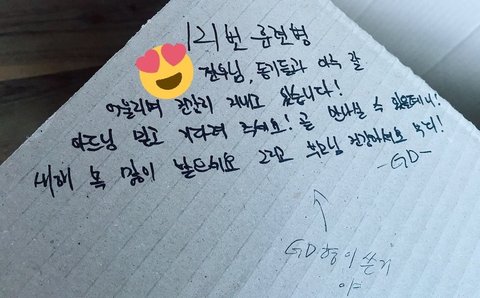 121번 훈련병
전우님, 동기들과 아주 잘
어울리며 건강히 지내고 있습니다!
아드님 믿고 기다려 주세요! 곧 만나실 수 있을테니!
새해 복 많이 받으세요 그리고 부모님 건강하세요
-GD-
GD형이 쓴거
야